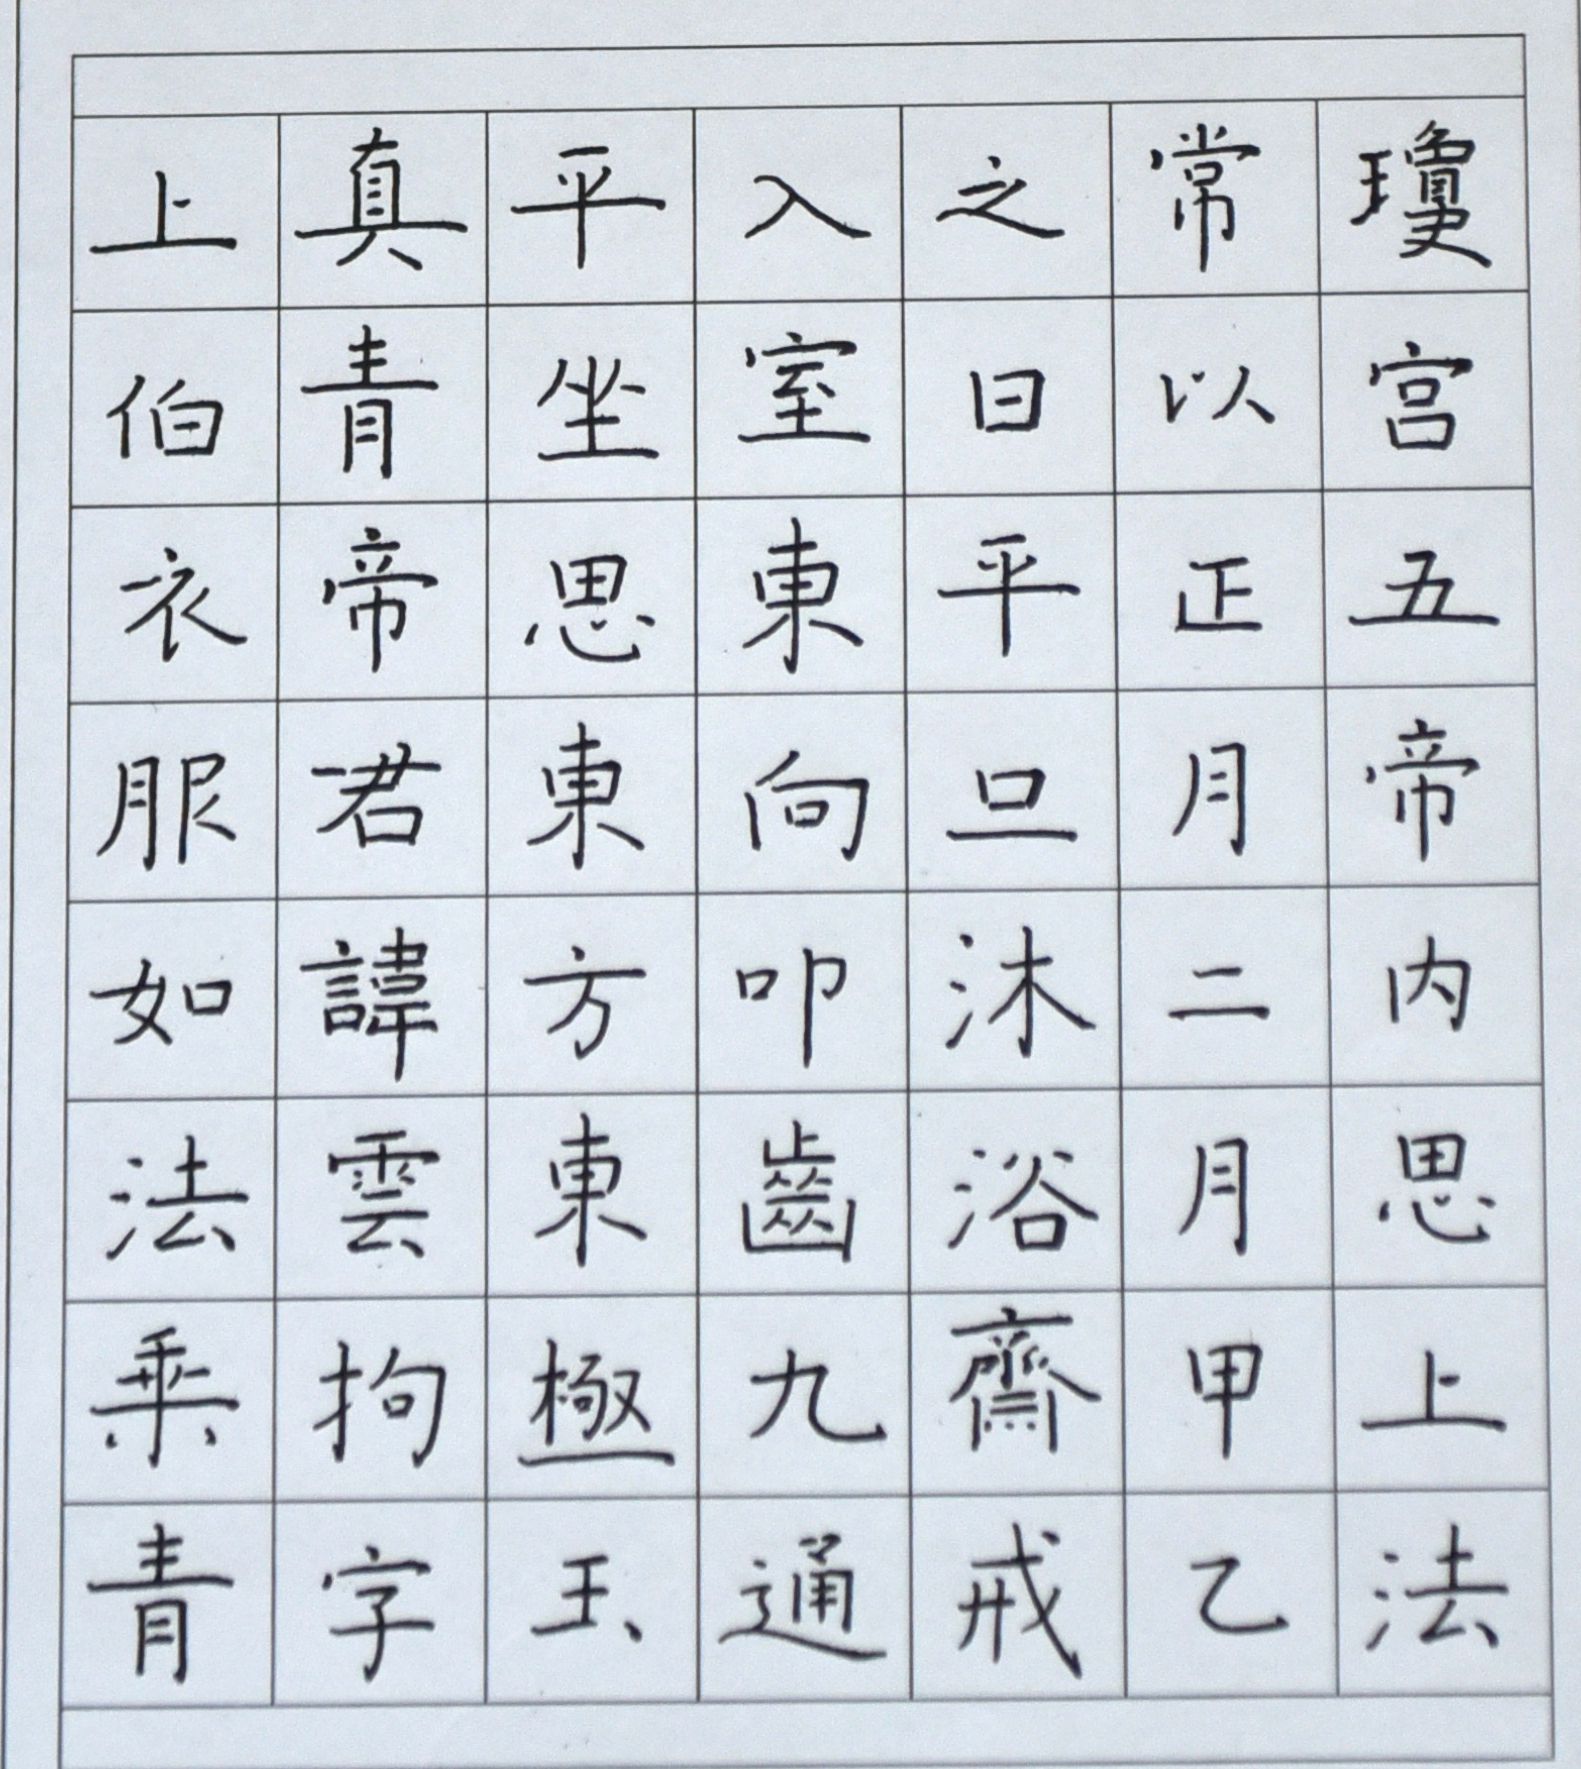 瓊宮五帝内思上法
常以正月二月甲乙
之日平旦沐浴齋戒
入室東向叩齒九通
平坐思東方東極玉
真青帝君諱雲拘字
上伯衣服如法乗青